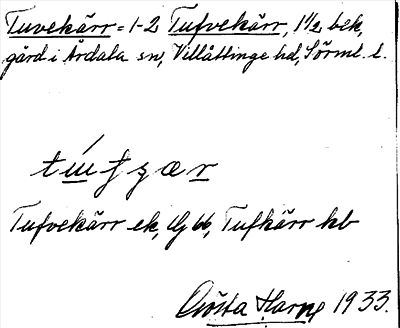 Tuvekärr = 1-2 Tufvekärr, 1 1/2 bek,
gård i Årdala sn, Villåttinge hd, Sörml. l.
Tufvekärr ek, Tufkärr kb
Gösta Harne 1933.